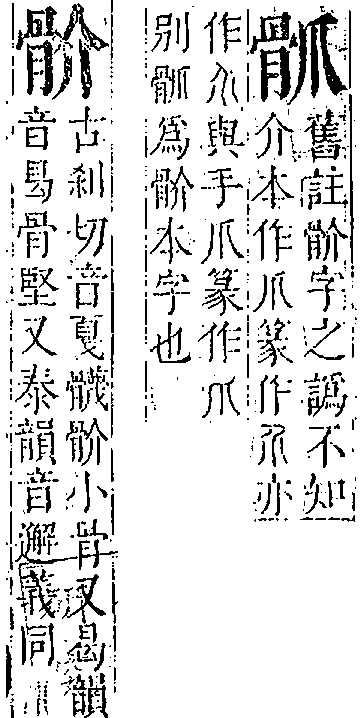 舊註骱字之譌不知
介本作爪篆作亦
作與手爪篆作爪
別爲骱本字也
骱
古刹切音戛骱小骨又曷韻
音曷骨堅又泰韻音邂義同